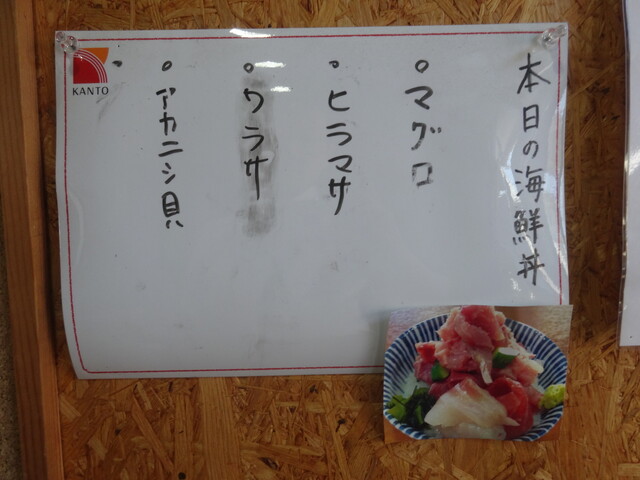 本日の海鮮丼
マグロ
ヒラマサ
ワラサ
アカニシ貝
KANTO